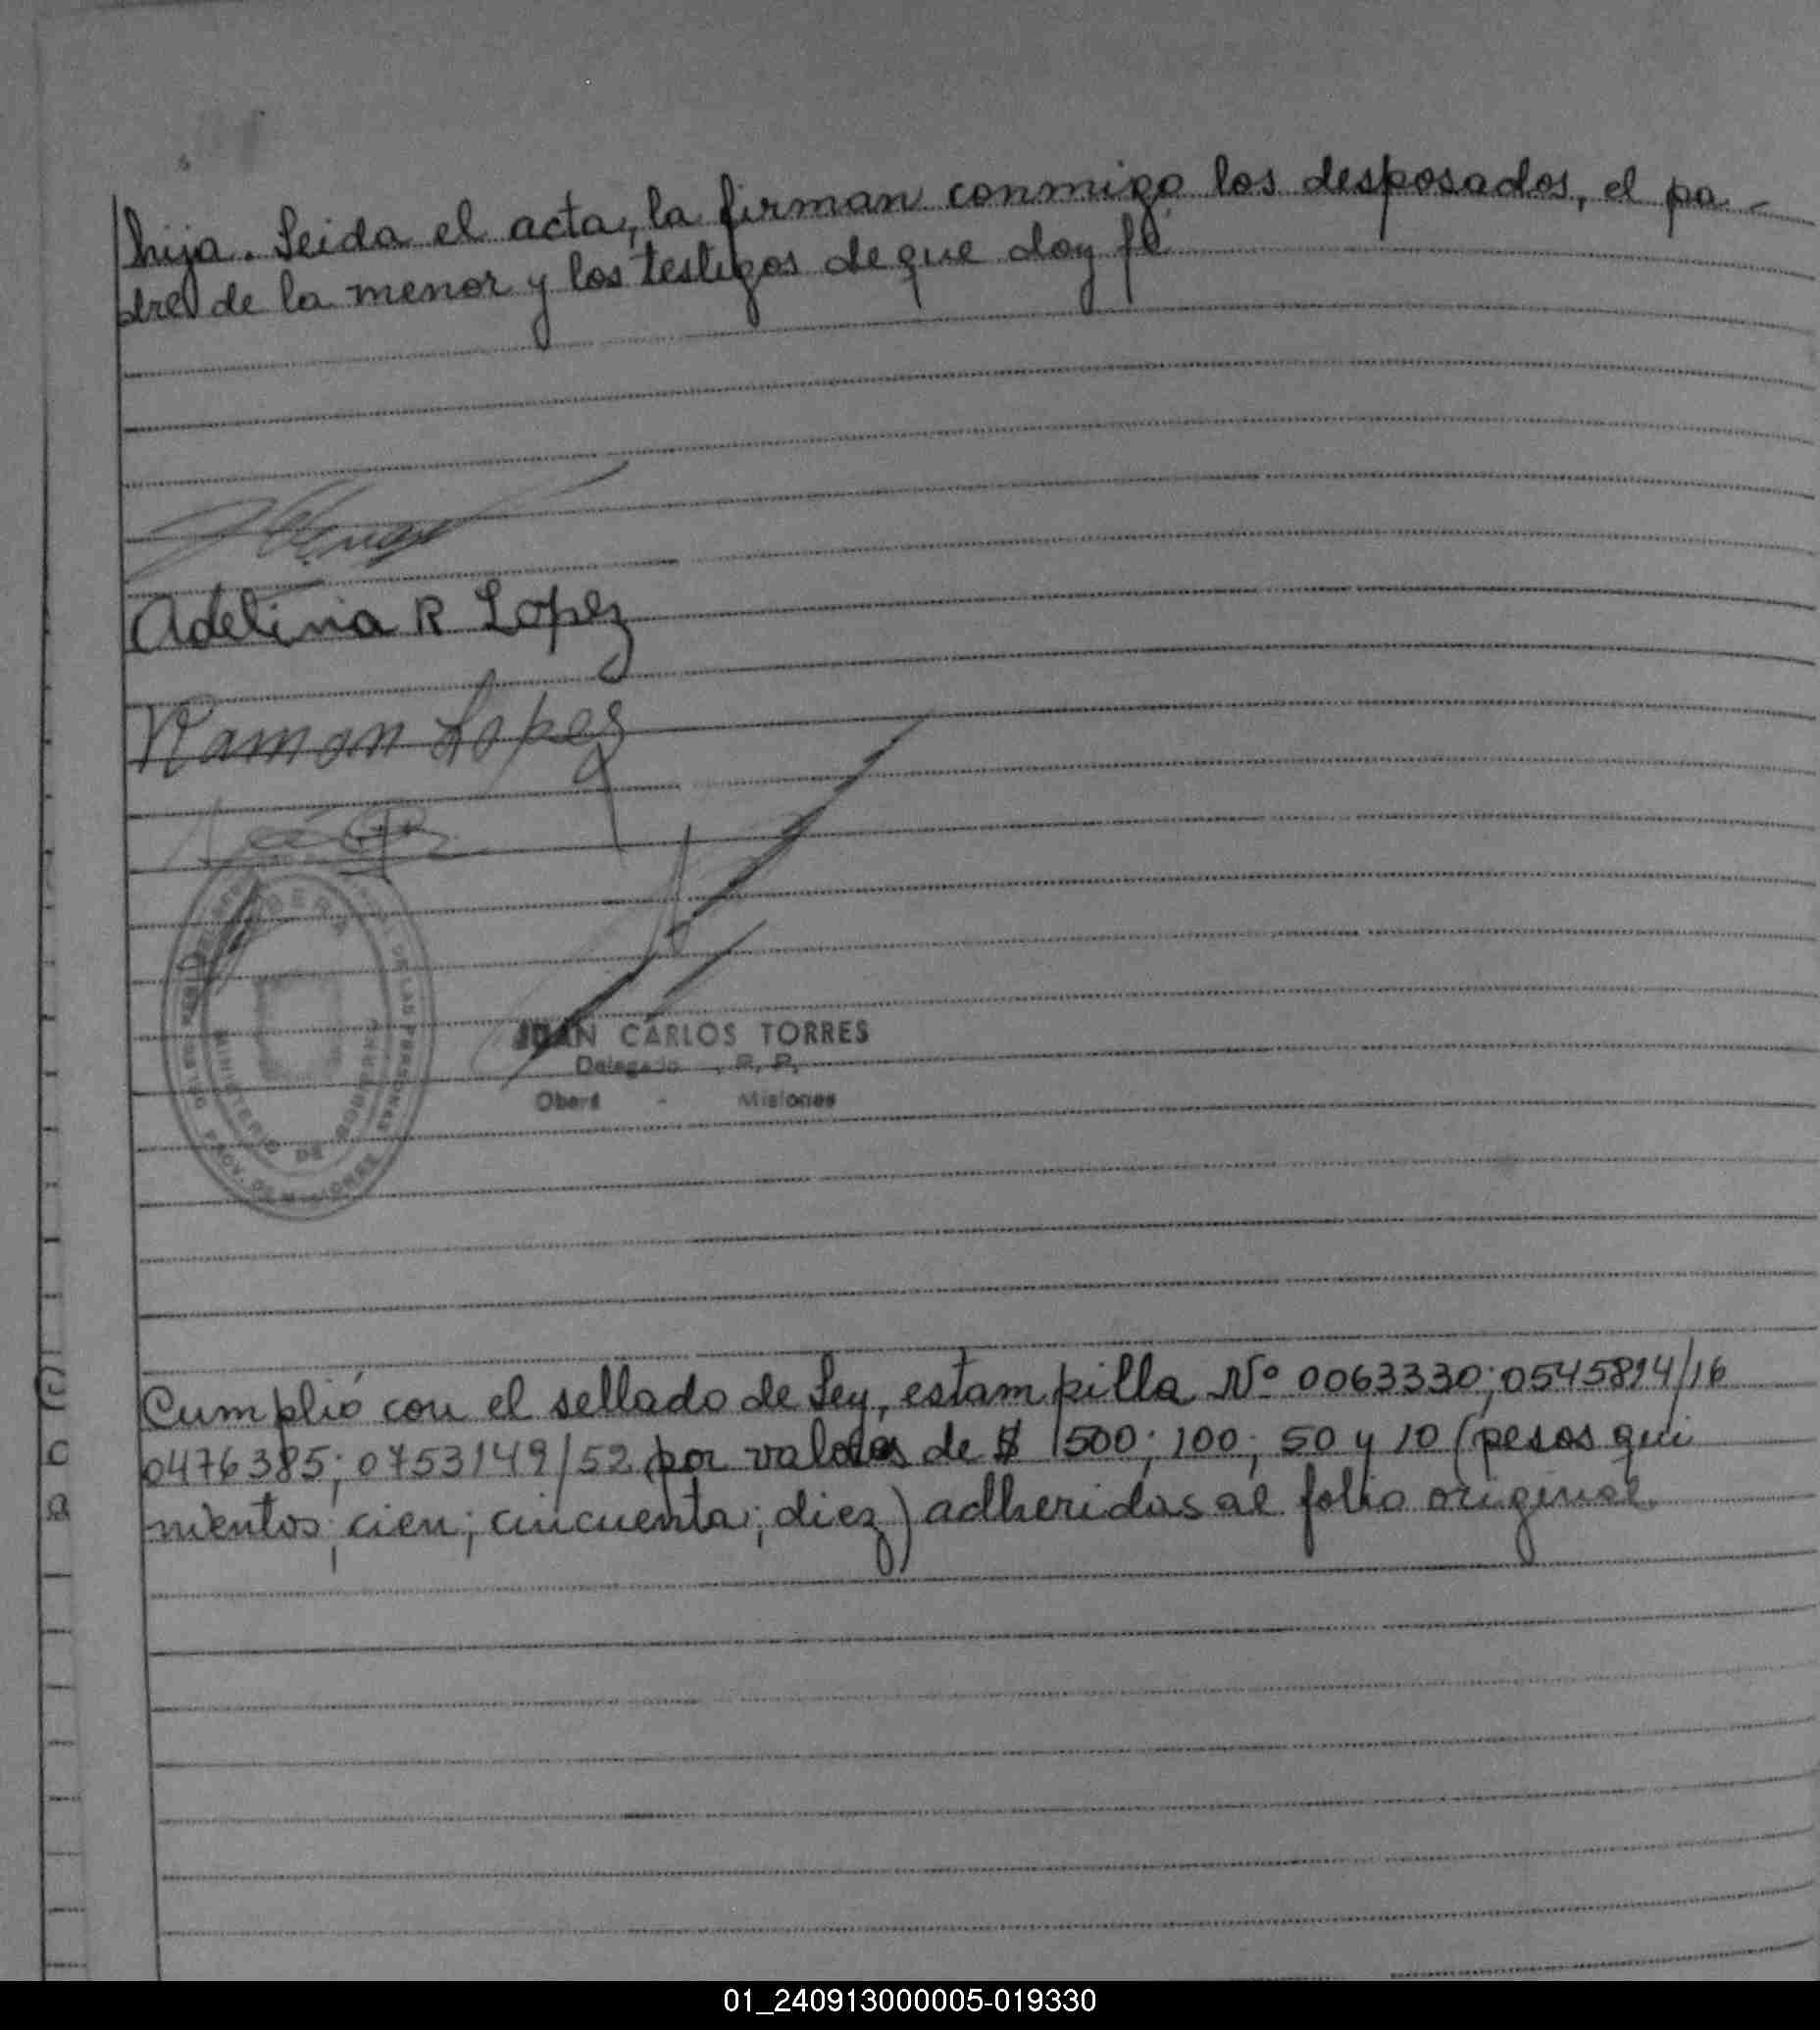 hija. Leida el acta, la firman conmigo los desposados, el pa-
dre de la menor y los testigos de que doy fé
Adelina R Lopez
Ramon Lopez
OBERA
DE LAS PERSONAS
MINISTERIO DE GOBIERNO
PROV. DE MISIONES
JUAN CARLOS TORRES
Delegado R. P.
Oberá - Misiones
Cumplió con el sellado de Ley, estampilla Nº 0063330; 0545814/16
0476385; 0753149/52 por valores de $ 500; 100; 50 y 10 (pesos qui
nientos; cien; cincuenta; diez) adheridas al folio original.
01_240913000005-019330